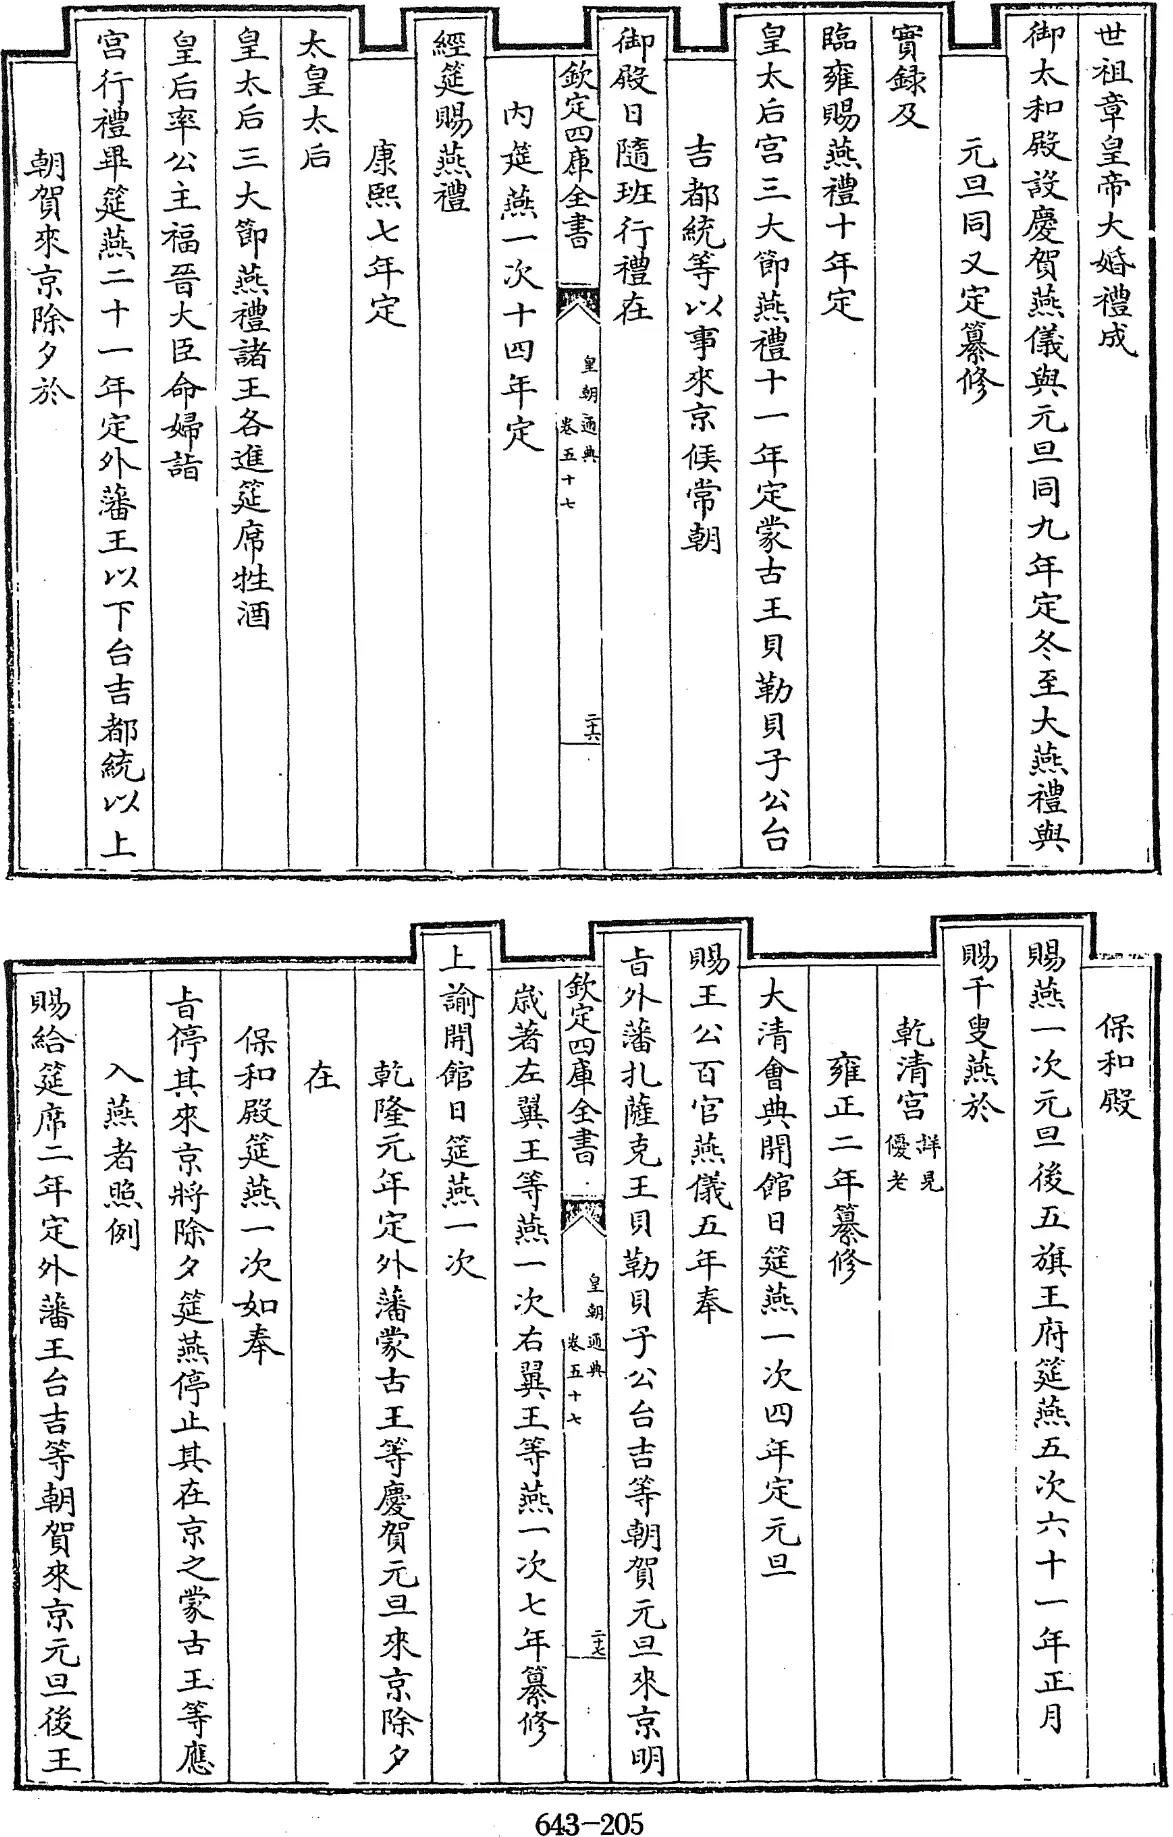 世祖章皇帝大婚禮成
御太和殿設慶賀燕儀與元旦同九年定冬至大燕禮與
元旦同又定纂修
實録及
臨雍賜燕禮十年定
皇太后宮三大節燕禮十一年定蒙古王貝勒貝子公台
吉都統等以事來京俟常朝
御殿日隨班行禮在
欽定四庫全書
皇朝通典
卷五十七
二十六
内筵燕一次十四年定
經筵賜燕禮
康熙七年定
太皇太后
皇太后三大節燕禮諸王各進筵席牲酒
皇后率公主福晉大臣命婦詣
宮行禮畢筵燕二十一年定外藩王以下台吉都統以上
朝賀來京除夕於
保和殿
賜燕一次元旦後五旗王府筵燕五次六十一年正月
賜千叟燕於
乾清宮詳見
優老
雍正二年纂修
大清會典開館日筵燕一次四年定元旦
賜王公百官燕儀五年奉
旨外藩扎薩克王貝勒貝子公台吉等朝賀元旦來京明
欽定四庫全書
皇朝通典
卷五十七
二十七
嵗著左翼王等燕一次右翼王等燕一次七年纂修
上諭開館日筵燕一次
乾隆元年定外藩蒙古王等慶賀元旦來京除夕
在
保和殿筵燕一次如奉
旨停其來京將除夕筵燕停止其在京之蒙古王等應
入燕者照例
賜給筵席二年定外藩王台吉等朝賀來京元旦後王
643-205